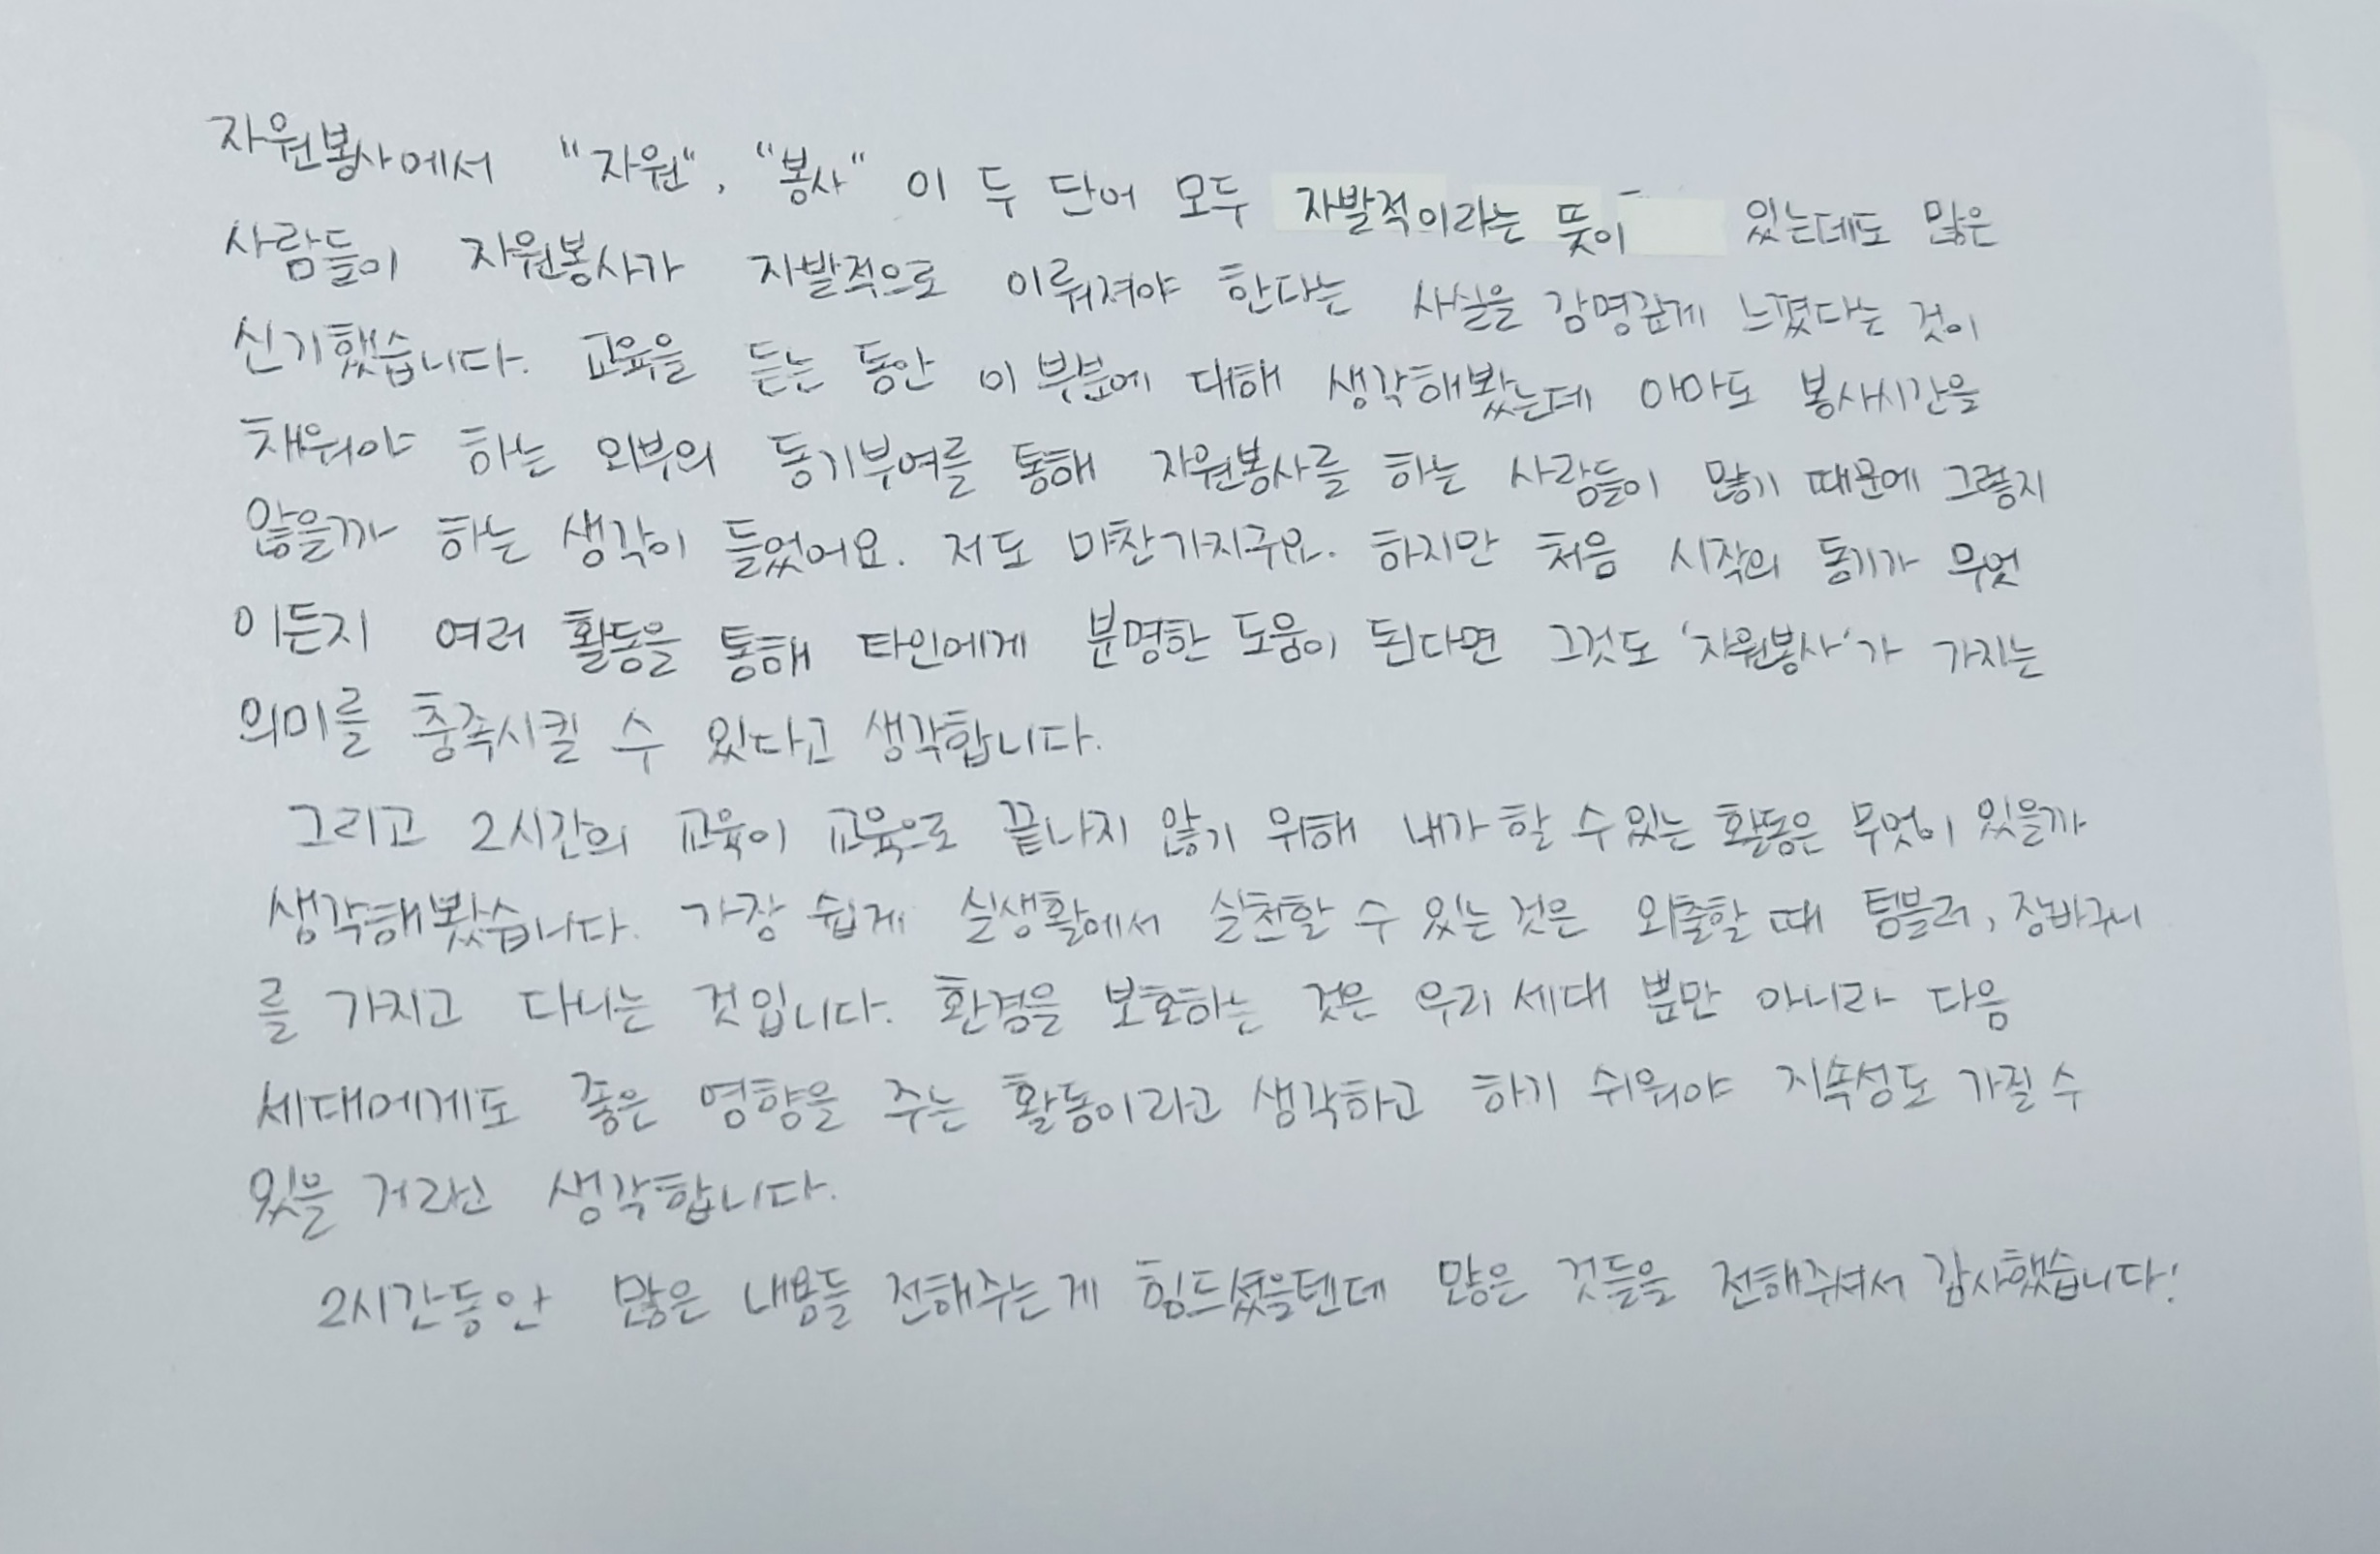 자원봉사에서 "자원", "봉사" 이 두 단어 모두 자발적이라는 뜻이 있는데도 많은
사람들이 자원봉사가 자발적으로 이뤄져야 한다는 사실을 감명깊게 느꼈다는 것이
신기했습니다. 교육을 듣는 동안 이 부분에 대해 생각해봤는데 아마도 봉사시간을
채워야 하는 외부의 동기부여를 통해 자원봉사를 하는 사람들이 많기 때문에 그렇지
않을까 하는 생각이 들었어요. 저도 마찬가지구요. 하지만 처음 시작의 동기가 무엇
이든지 여러 활동을 통해 타인에게 분명한 도움이 된다면 그것도 '자원봉사'가 가지는
의미를 충족시킬 수 있다고 생각합니다.
그리고 2시간의 교육이 교육으로 끝나지 않기 위해 내가 할 수 있는 활동은 무엇이 있을까
생각해봤습니다. 가장 쉽게 실생활에서 실천할 수 있는 것은 외출할 때 텀블러, 장바구니
를 가지고 다니는 것입니다. 환경을 보호하는 것은 우리 세대 뿐만 아니라 다음
세대에게도 좋은 영향을 주는 활동이라고 생각하고 하기 쉬워야 지속성도 가질 수
있을 거라고 생각합니다.
2시간동안 많은 내용들 전해주는게 힘드셨을텐데 많은 것들을 전해주셔서 감사했습니다!